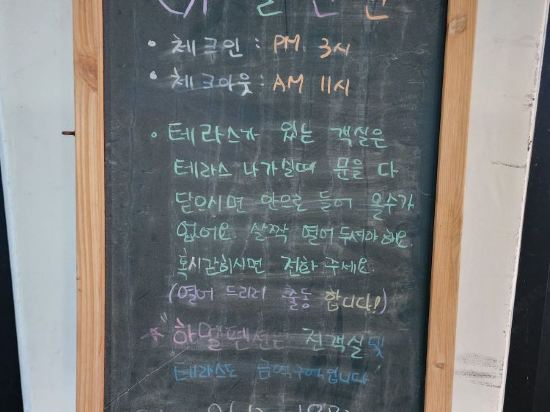 • 체크인 : PM 3시
• 체크아웃 : AM 11시
• 테라스가 있는 객실은
테라스 나가실때 문을 다
닫으시면 안으로 들어 올수가
없어요 살짝 열어두셔야 해요
혹시 갇히시면 전화 주세요
(열어 드리러 출동 합니다!)
* "하멜펜션은 전객실 및
테라스도 금연구역입니다"